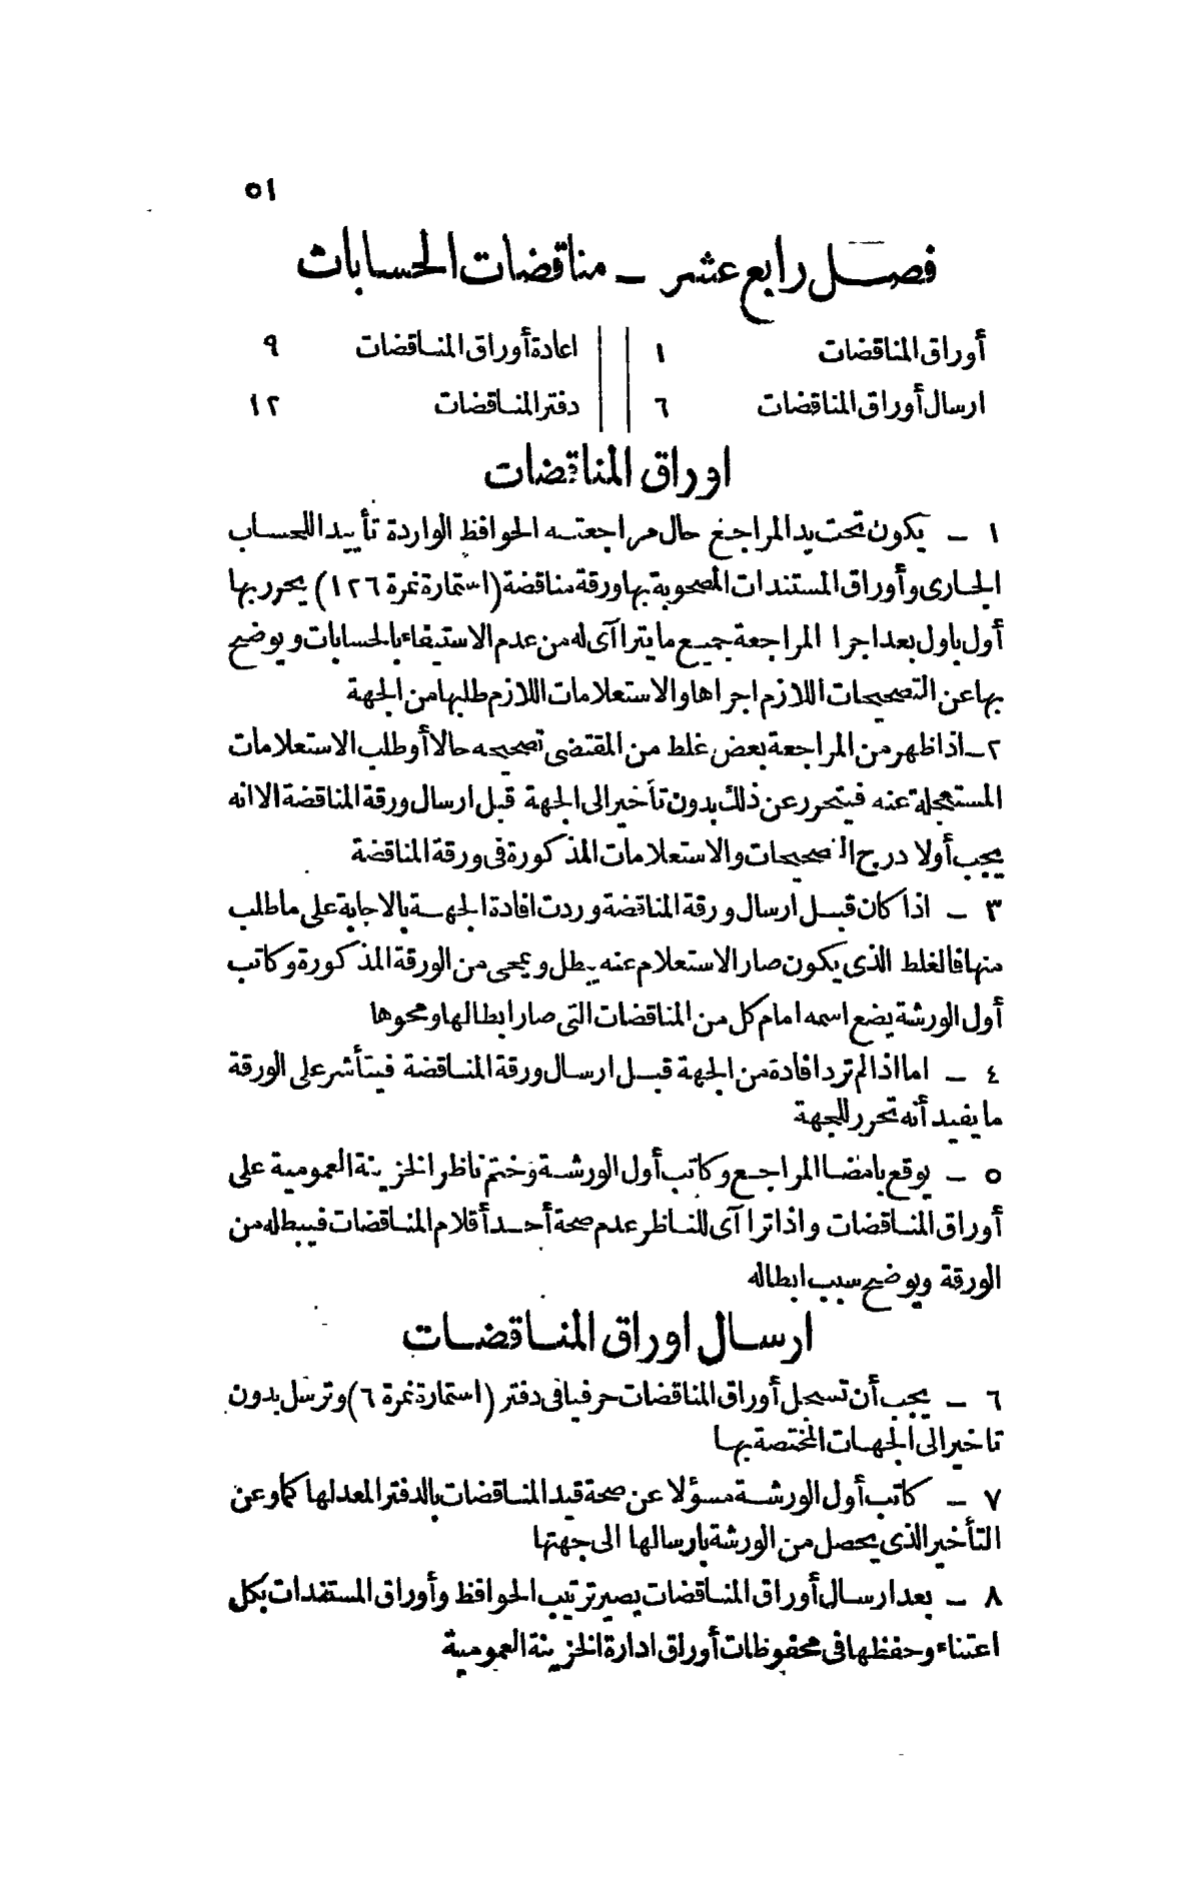 ٥١
فصل رابع عشر – مناقضات الحسابات
أوراق المناقضات ١ اعادة أوراق المناقضات ٩
ارسال أوراق المناقضات ٦ دفتر المناقضات ١٢
اوراق المناقضات
١ – يكون تحت يد المراجع حال مراجعته الحوافظ الواردة تأييدا للحساب
الجارى وأوراق المستندات المصحوبة بها ورقة مناقضة (استمارة نمرة ١٢٦) يحرر بها
أول باول بعد اجرا المراجعة جميع ما يتراآى له من عدم الاستيفاء بالحسابات ويوضح
بها عن التصحيحات اللازم اجراها والاستعلامات اللازم طلبها من الجهة
٢ – اذا ظهر من المراجعة بعض غلط من المقتضى تصحيحه حالا أو طلب الاستعلامات
المستعجلة عنه فيتحرر عن ذلك بدون تأخير الى الجهة قبل ارسال ورقة المناقضة الا انه
يجب أولا درج التصحيحات والاستعلامات المذكورة فى ورقة المناقضة
٣ – اذا كان قبل ارسال ورقة المناقضة وردت افادة الجهة بالاجابة على ما طلب
منها فالغلط الذى يكون صار الاستعلام عنه يبطل ويمحى من الورقة المذكورة وكاتب
أول الورشة يضع اسمه امام كل من المناقضات التى صار ابطالها ومحوها
٤ – اما اذا لم ترد افادة من الجهة قبل ارسال ورقة المناقضة فيتأشر على الورقة
ما يفيد أنه تحرر للجهة
٥ – يوقع بامضا المراجع وكاتب أول الورشة وختم ناظر الخزينة العمومية على
أوراق المناقضات واذا تراآى للناظر عدم صحة أحد أقلام المناقضات فيبطله من
الورقة ويوضح سبب ابطاله
ارسال اوراق المناقضات
٦ – يجب أن تسجل أوراق المناقضات حرفيا فى دفتر (استمارة نمرة ٦) وترسل بدون
تاخير الى الجهات المختصة بها
٧ – كاتب أول الورشة مسؤلا عن صحة قيد المناقضات بالدفتر المعد لها كما وعن
التأخير الذى يحصل من الورشة بارسالها الى جهتها
٨ – بعد ارسال أوراق المناقضات يصير ترتيب الحوافظ وأوراق المستندات بكل
اعتناء وحفظها فى محفوظات أوراق ادارة الخزينة العمومية